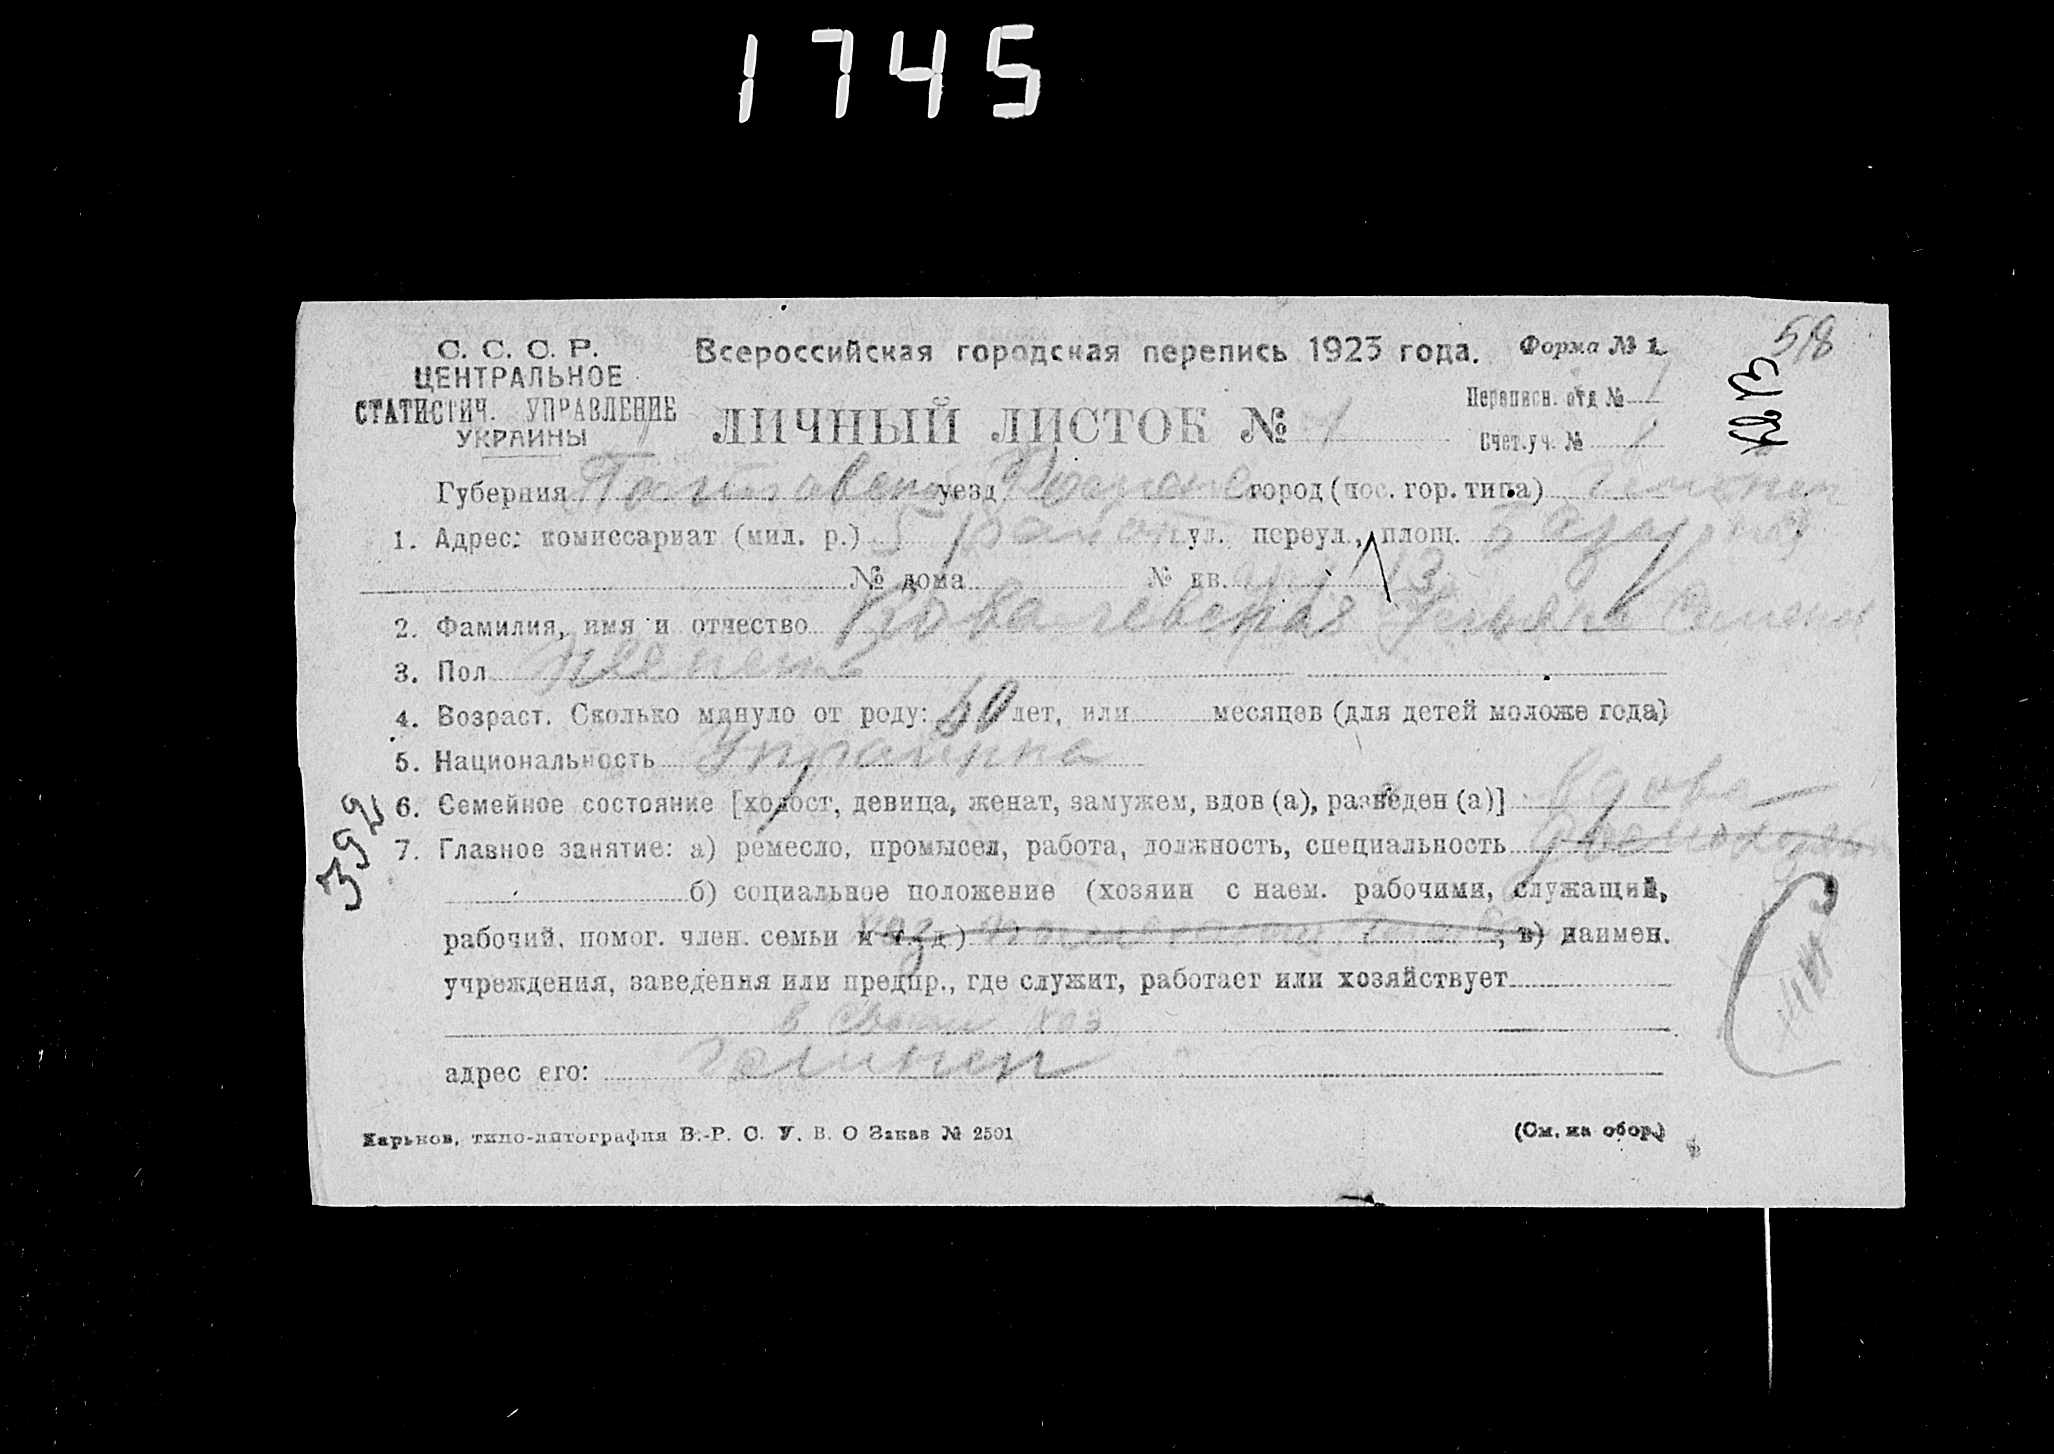 1745
С. С. С. Р.
ЦЕНТРАЛЬНОЕ
СТАТИСТИЧ. УПРАВЛЕНИЕ
УКРАИНЫ
Всероссийская городская перепись 1923 года.
Форма № 1
518
ЛИЧНЫЙ ЛИСТОК № 1
Переписн. отд № 1
Счет. уч. № 1
Губерния Полтавск уезд город (пос. гор. типа)
1. Адрес: комиссариат (мил. р.) 5 район ул. переул., площ. Базарная
№ дома № кв. 13
2. Фамилия, имя и отчество Ковалевская Ульяна Симеон
3. Пол женск
4. Возраст. Сколько минуло от роду: 60 лет, или месяцев (для детей моложе года)
5. Национальность Украинка
6. Семейное состояние [холост, девица, женат, замужем, вдов (а), разведен (а)] вдова
7. Главное занятие: а) ремесло, промысел, работа, должность, специальность
б) социальное положение (хозяин с наем. рабочими, служащий,
рабочий, помог. член. семьи и т. д.) хоз , в) наимен.
учреждения, заведения или предпр., где служит, работает или хозяйствует
в своем хоз
адрес его:
392
Харьков, типо-литография В.-Р. С. У. В. О Заказ № 2501
(См. на обор.)